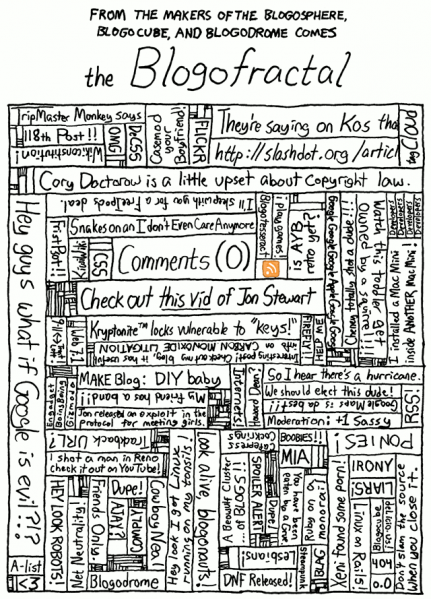 FROM THE MAKERS OF THE BLOGOSPHERE,
BLOGOCUBE, AND BLOGODROME COMES
the Blogofractal
TripMaster Monkey says
118th Post!!
Wikiconstitution!
OMG
DeCSS
Casemod your Boyfriend!
FLICKR
They're saying on Kos that
http://slashdot.org/articl
tag Cloud
Cory Doctorow is a little upset about copyright law.
Hey guys what if Google is evil?!?
I'll sleep with you for a FreeIpods deal.
Snakes on an I don't Even Care Anymore
FirstPsot!!
KiwiWiki
CSS
Comments (0)
Blogotesseract
¡play games!
Is AYB retro yet?
Google Google Google Apple Google Google
Cheney totally shot a dude!!!
Watch this toddler get owned by a squirrel!!!
Developers
Developers
Developers
Developers
I installed a Mac Mini inside ANOTHER Mac Mini!
Check out this vid of Jon Stewart
9/11 <-> Trent!
Web 2.7.1
Kryptonite™ locks vulnerable to "keys!"
Interesting post! Check out my blog, it has useful info on CARBON MONOXIDE LITIGATION
FIREFLY!!
HELP ME
Engadget
Boing Boing
Gizmodo
MAKE Blog: DIY baby
My friend has a band!!
Jon released an exploit in the protocol for meeting girls.
Internets!
Howard Dean?
So I hear there's a hurricane.
We should elect this dude!
Google Maps is da best!!
Moderation: +1 Sassy
RSS!
¡Trackback URL?
I shot a man in Reno
check it out on YouTube!
HEY LOOK ROBOTS!
Net Neutrality!
Friends Only.
Dupe!
AJAX?
COMPLY!
Cowboy Neal
Hey look I got Linux running on my tonsils!
Look alive blogonauts!
A-list
<3
Blogodrome
Cafepress cockrings
A Beowulf Cluster... of BLOGS!!
SPOILER ALERT!
Dupe!
Boobies!!
MIA
You have been eaten by a Grue.
Ruby on a monorail
lesbians!
Steampunk
BLAG
DNF Released!
PONIES!
IRONY
LIARS!
Xeni found some porn!
Linux on Rails!
Blogocube
del.icio.us!
404
0.0
Don't slam the source when you close it.